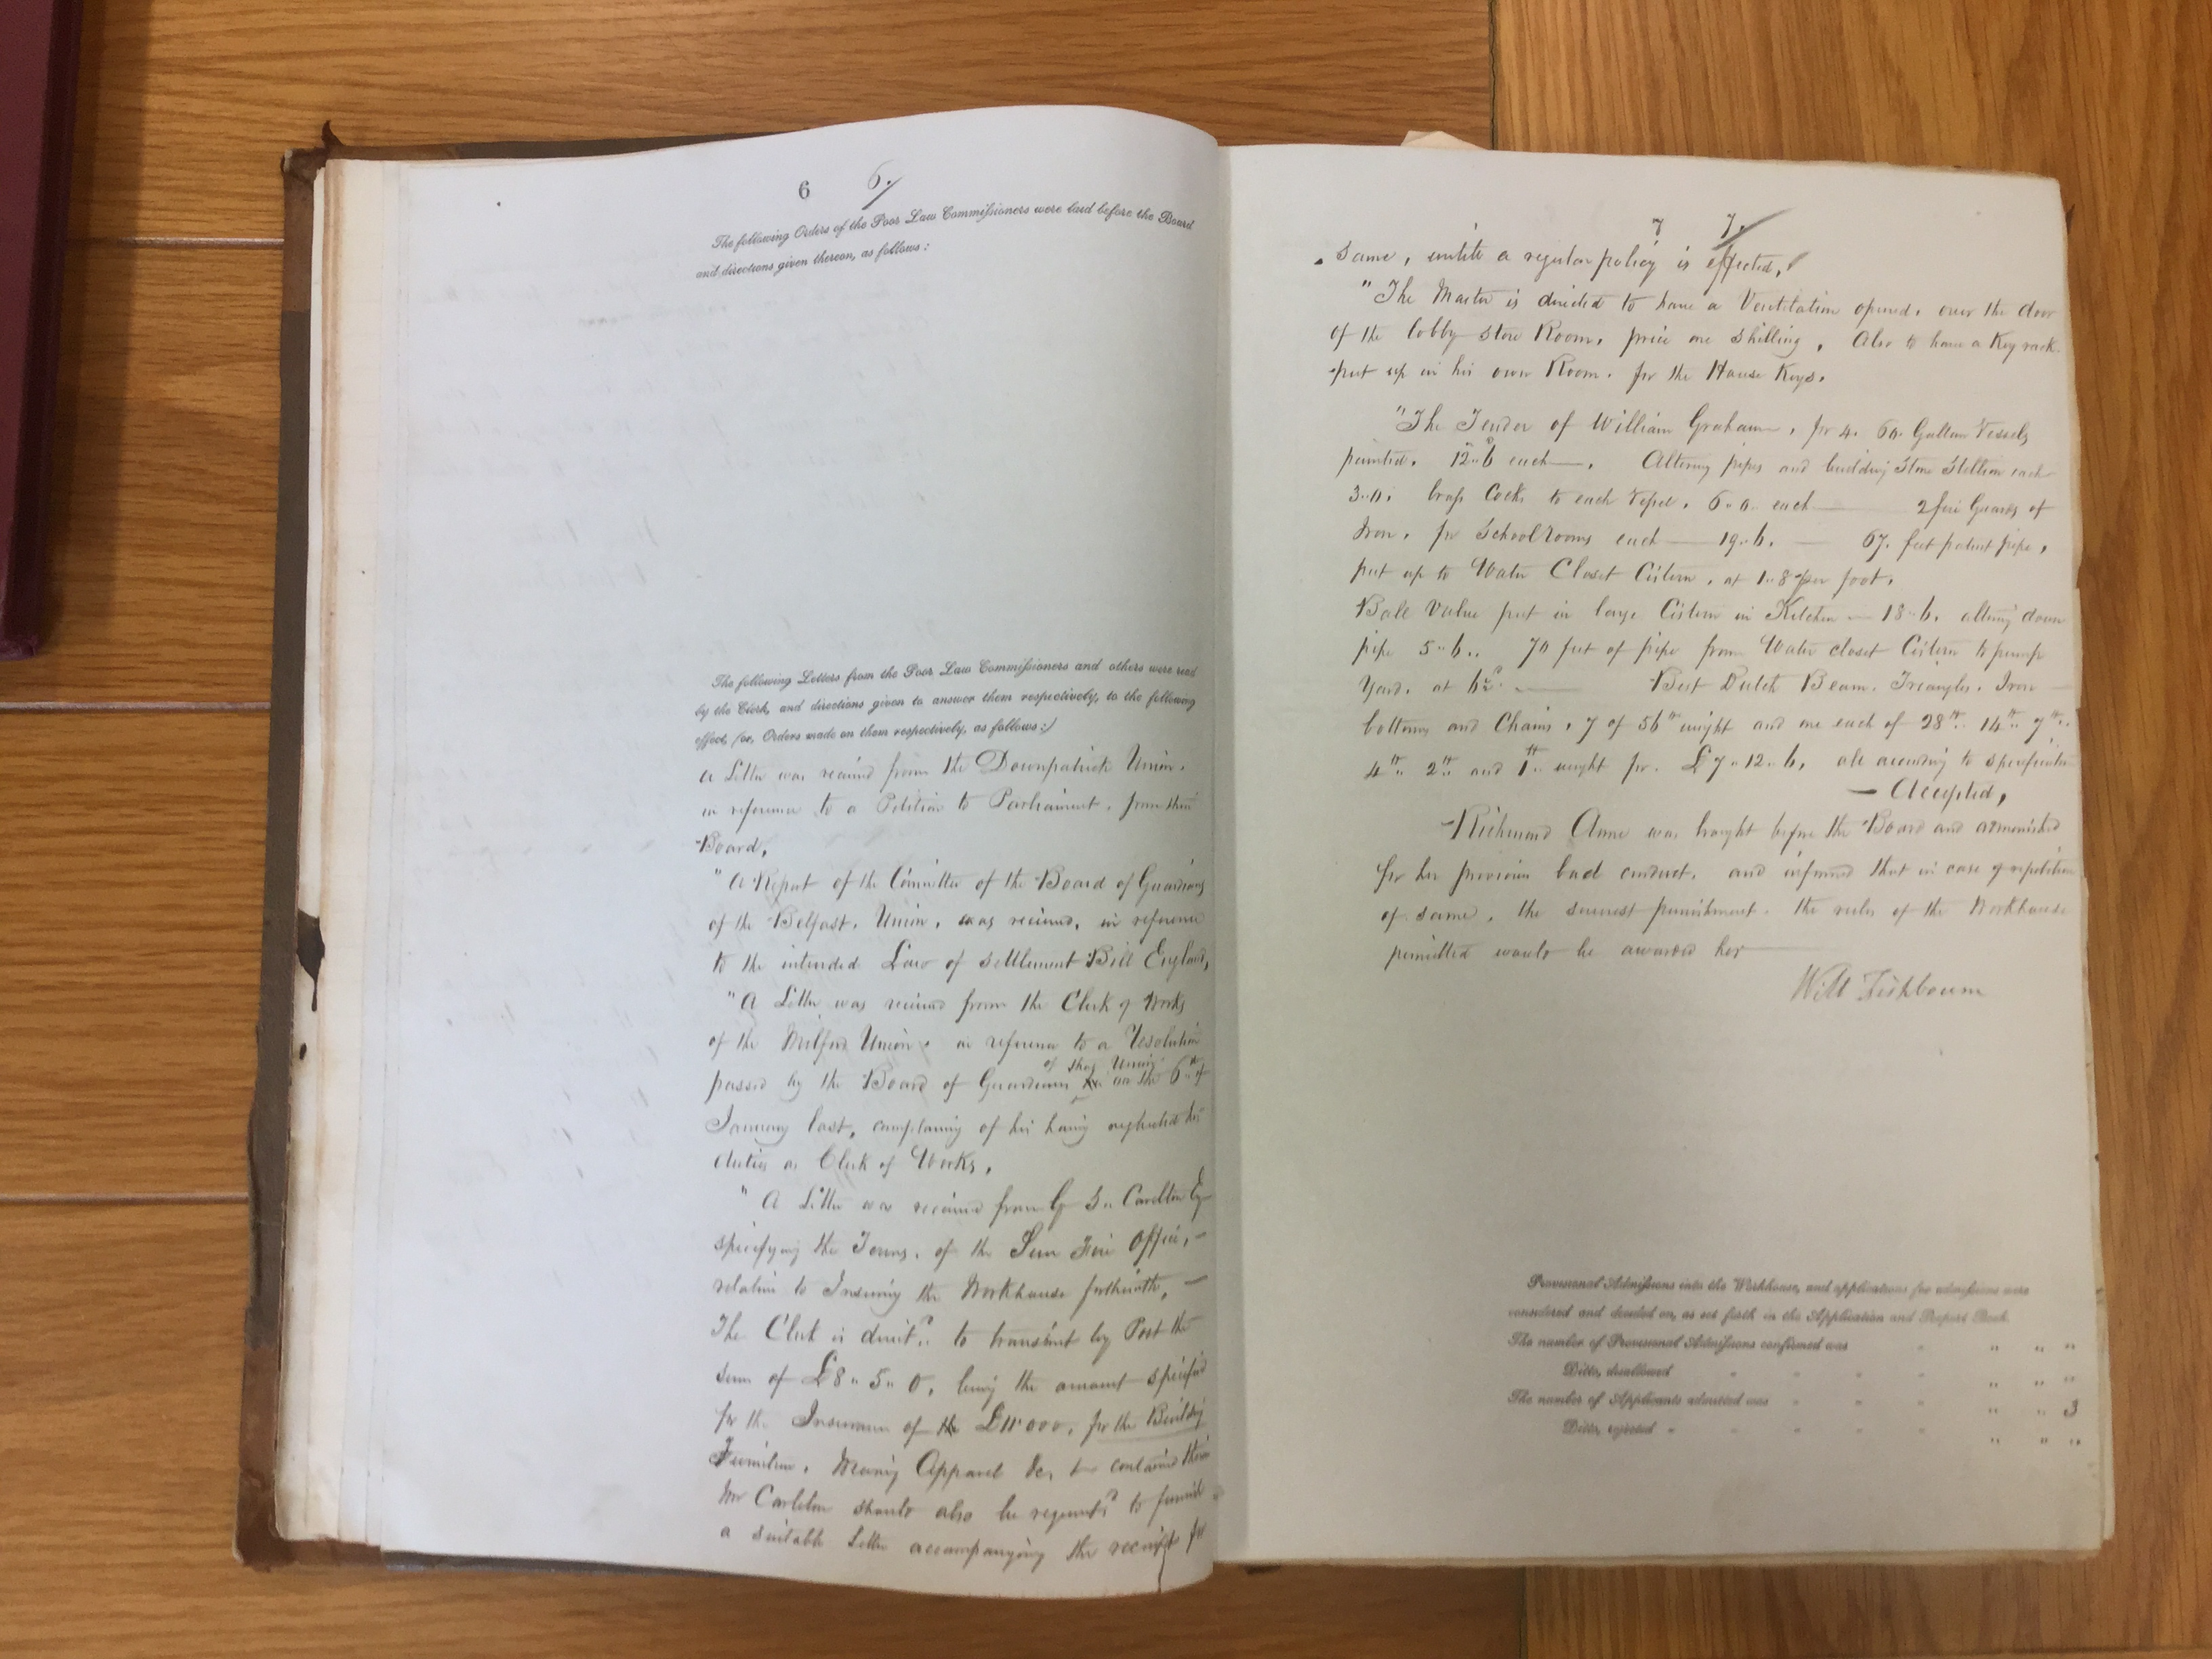 6 6
The following Orders of the Poor Law Commissioners were laid before the Board
and directions given thereon, as follows:
The following Letters from the Poor Law Commissioners and others were read
by the Clerk, and directions given to answer them respectively, to the following
effect, (or, Orders made on them respectively, as follows:)
A Letter was received from the Downpatrick Union,
in reference to a Petition to Parliament, from their
Board,
" A Report of the Committee of the Board of Guardians
of the Belfast, Union, was received, in reference
to the intended Law of Settlement Bill England,
" A Letter was received from the Clerk of Works
of the Milford Union, in reference to a Resolution
passed by the Board of Guardians of that Union on the 6th of
January last, complaining of his having neglected his
duties as Clerk of Works,
" A Letter was received from G S Carelton Esq
specifying the Terms, of the Sun Fire Office, —
relative to Insuring the Workhouse forthwith, —
The Clerk is directd to transmit by Post the
sum of £8 " 5 " 0, being the amount specified
for the Insurance of the £11,000, for the Building
Furniture, Wearing Apparel &c, contained therein
Mr Carleton should also be requestd to furnish
a suitable Letter accompanying the receipt for
7 7.
same, until a regular policy is effected,
" The Master is directed to have a Ventilation opened, over the door
of the lobby store Room, price one shilling, Also to have a Key rack
put up in his own Room. for the House Keys.
" The Tender of William Graham, for 4. 60. Gallon Vessels
painted. 12 " 6 each —. Altering pipes and building Stone Stillion each
3 " 0. brass Cocks to each Vessel. 6 " 0 each — 2 fire Guards of
Iron, for Schoolrooms each — 19 " 6. — 67. feet patent pipe,
put up to Water Closet Cistern, at 1 " 8 per foot,
Ball Valve put in large Cistern in Kitchen — 18 " 6. altering down
pipe 5 " 6.. 70 feet of pipe from Water closet Cistern to pump
Yard. at — Best Dutch Beam. Triangles. Iron —
bottoms and Chains, 7 of 56 lb weight and one each of 28 lb 14 lb 7 lb
4 lb 2 lb and 1 lb weight for. £7 " 12 " 6, all according to specification
— Accepted,
Richmond Anne was brought before the Board and admonished
for her previous bad conduct, and informed that in case of repetition
of same, the severest punishment. the rules of the Workhouse
permitted would be awarded her —
Will Fishbourn
Provisional Admissions into the Workhouse, and applications for admissions were
considered and decided on, as set forth in the Application and Report Book.
The number of Provisional Admissions confirmed was " " "
Ditto, disallowed " " "
The number of Applicants admitted was " " 3
Ditto, rejected " " "